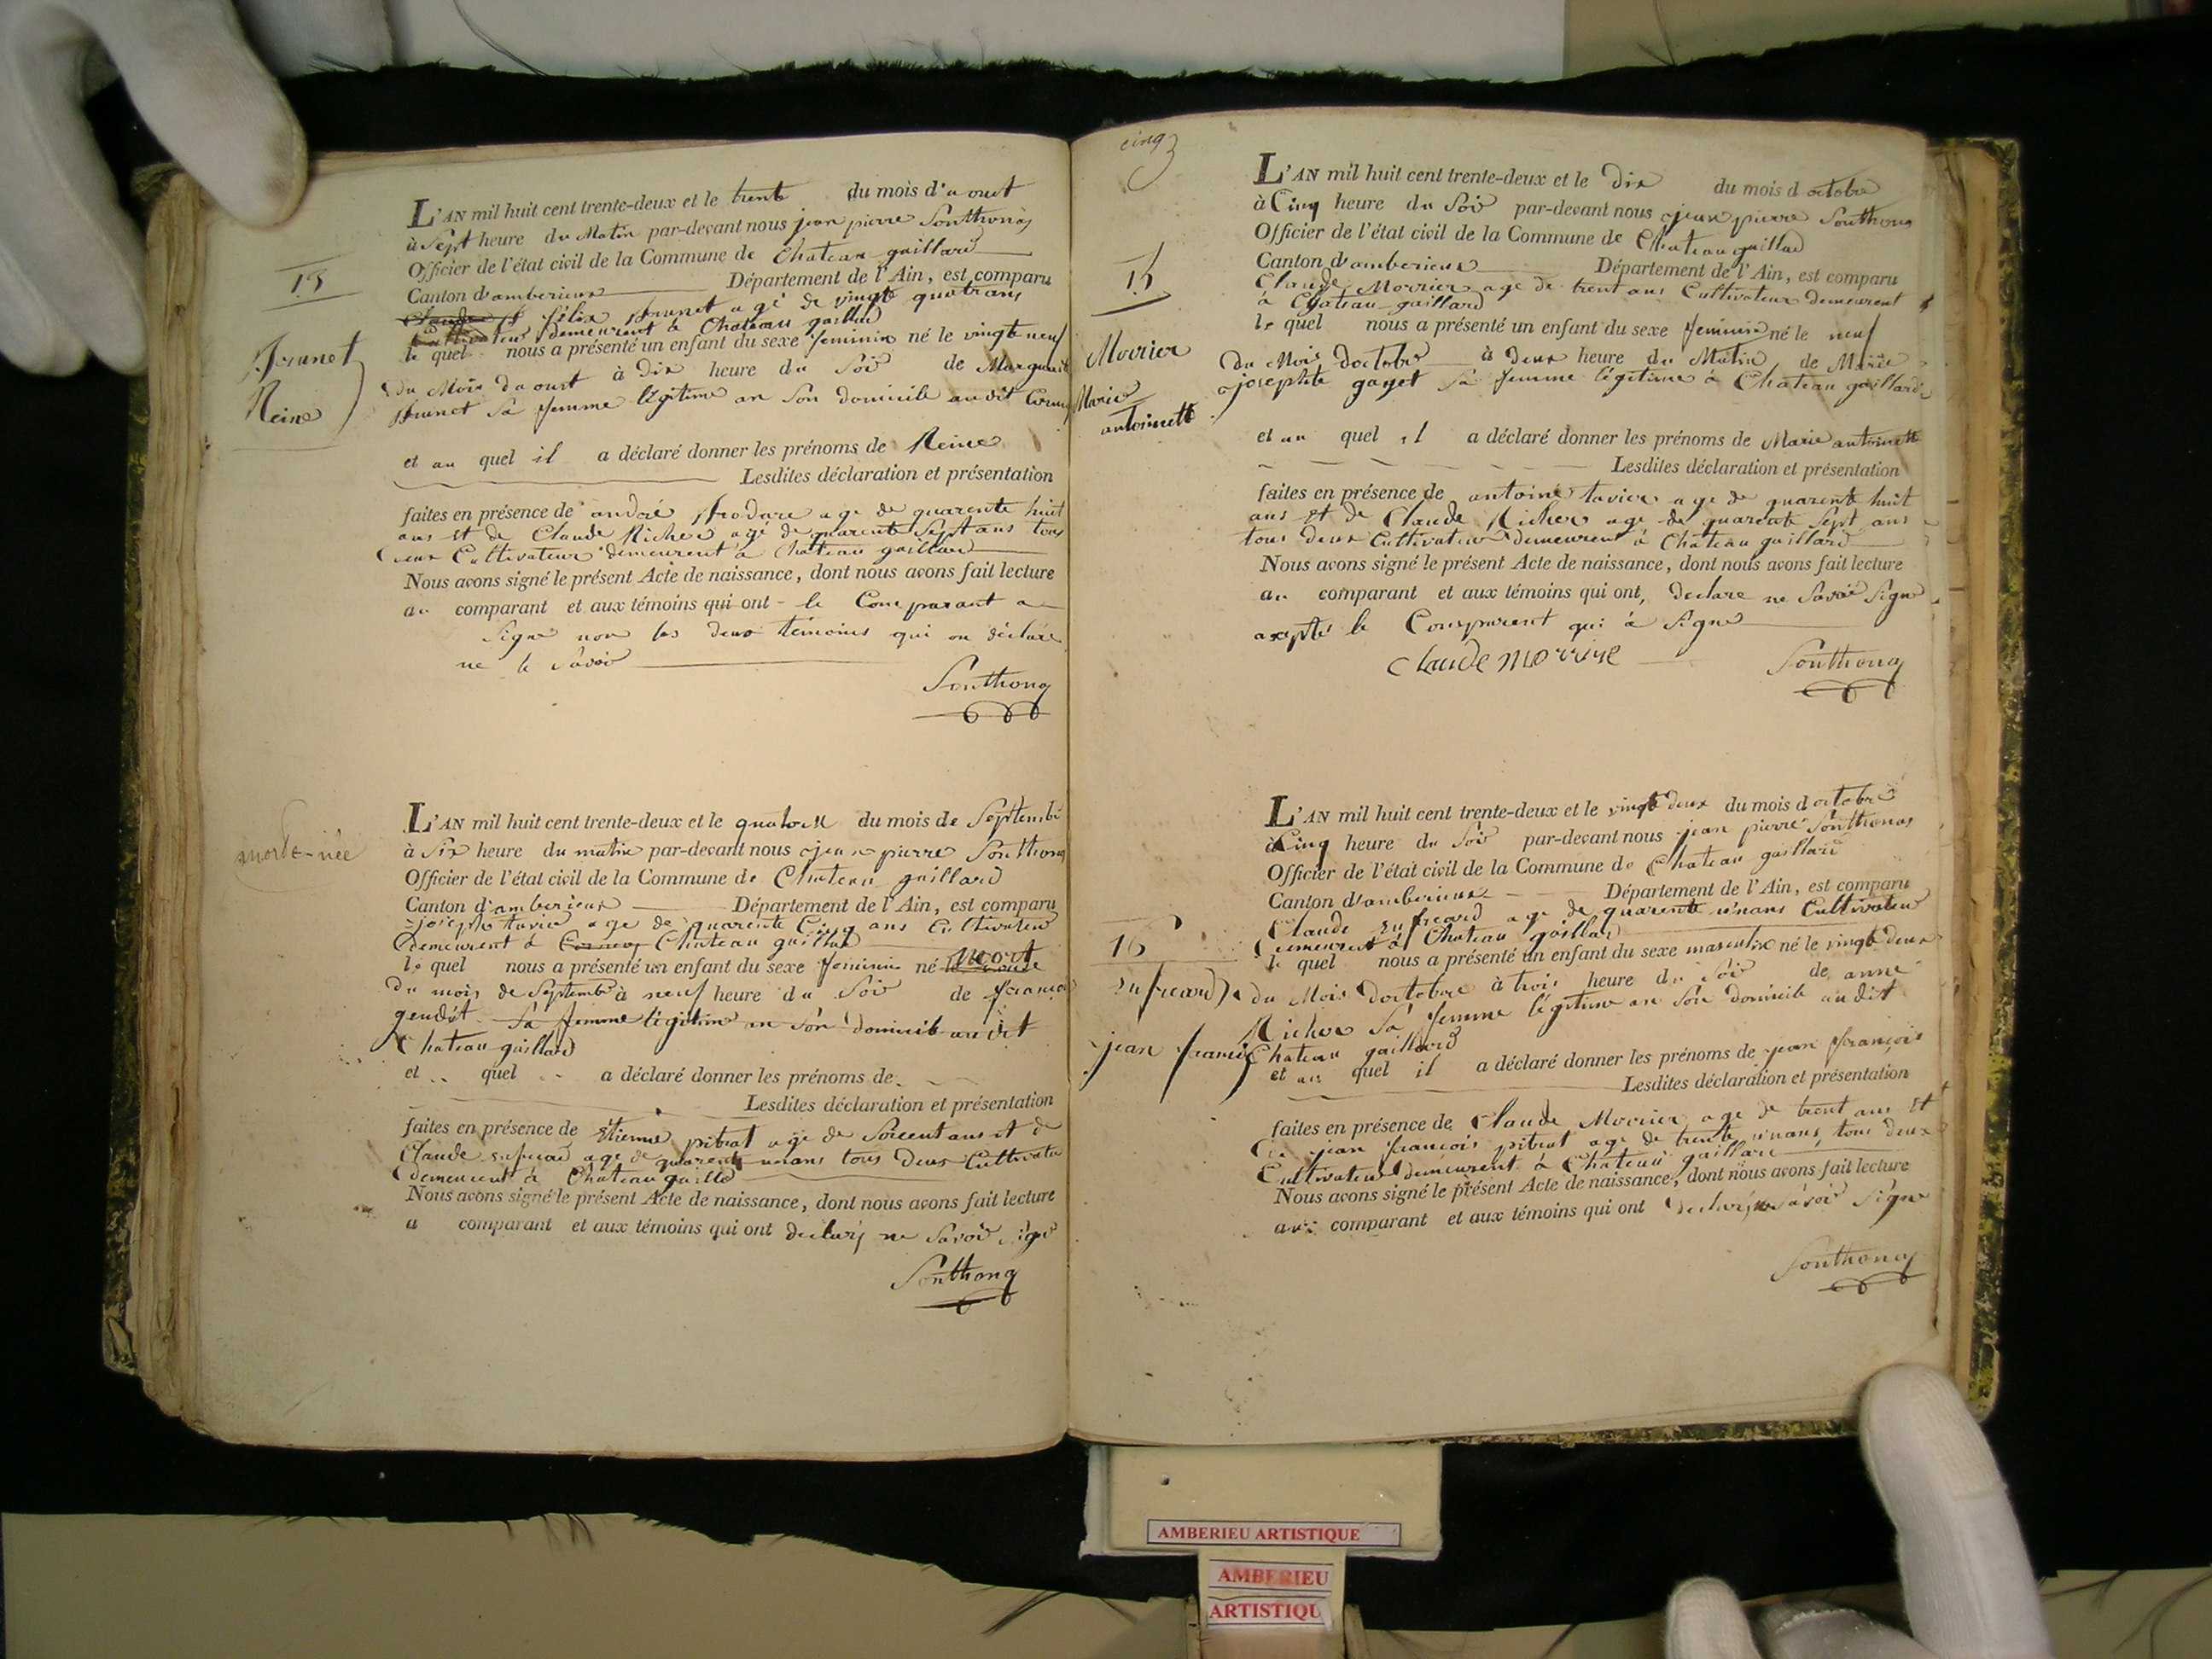 13
Brunet
Reine
L'AN mil huit cent trente-deux et le trente du mois d'aoust
à Sept heure du Matin par-devant nous jean pierre Sonthonas
Officier de l'état civil de la Commune de Chateau gaillard
Canton d'amberieux Département de l'Ain, est comparu
félix Brunet agé de vingt quatrans
Cultivateur demeurent à Chateau gaillard
le quel nous a présenté un enfant du sexe feminin né le vingt neuf
du Mois daoust à dix heure du Soir de Marguerite
Brunet sa femme légitime an son domicile audit
et au quel il a déclaré donner les prénoms de Reine
Lesdites déclaration et présentation
faites en présence de andré age de quarente huit
ans et de Claude Richer agé de quarente Sept ans tous
deux Cultivateur demeurent à Chateau gaillard
Nous avons signé le présent Acte de naissance, dont nous avons fait lecture
au comparant et aux témoins qui ont le Comparant a
Signe non les deux témoins qui on déclaré
ne le Savoir
Sonthonas
morte-née
L'AN mil huit cent trente-deux et le quatorze du mois de Septembre
à Six heure du matin par-devant nous jean pierre Sonthonas
Officier de l'état civil de la Commune de Chateau gaillard
Canton d'amberieux Département de l'Ain, est comparu
joseph tavier age de quarente Cinq ans Cultivateur
demeurent à Chateau gaillard
le quel nous a présenté un enfant du sexe feminin né mort
du mois de Septembre à neuf heure du Soir de françoise
sa femme légitime an son domicile audit
Chateau gaillard
et quel a déclaré donner les prénoms de
Lesdites déclaration et présentation
faites en présence de étienne pitrat age de Soiccent ans et de
Claude age de quarente unans tous deux Cultivateur
demeurent à Chateau gaillard
Nous avons signé le présent Acte de naissance, dont nous avons fait lecture
a comparant et aux témoins qui ont declarés ne Savoir signé
Sonthonas
cinq
15
Morrier
Marie
antoinette
L'AN mil huit cent trente-deux et le dix du mois d octobre
à Cinq heure du Soir par-devant nous jean pierre Sonthonas
Officier de l'état civil de la Commune de Chateau gaillard
Canton d'amberieux Département de l'Ain, est comparu
Claude Morrier age de trent ans Cultivateur demeurent
à Chateau gaillard
le quel nous a présenté un enfant du sexe feminin né le neuf
du Mois doctobre à deux heure du Matin de Marie
josephte gayet sa femme légitime à Chateau gaillard
et au quel il a déclaré donner les prénoms de Marie antoinette
Lesdites déclaration et présentation
faites en présence de antoine tavier age de quarente huit
ans et de Claude Richer age de quarente Sept ans
tous deux Cultivateur demeurent à Chateau gaillard
Nous avons signé le présent Acte de naissance, dont nous avons fait lecture
au comparant et aux témoins qui ont, declare ne Savoir Signe
axepter le Comparent qui à Signe
Claude morrier
Sonthonas
16
jean françois
L'AN mil huit cent trente-deux et le vingt deux du mois d octobre
à Cinq heure du Soir par-devant nous jean pierre Sonthonas
Officier de l'état civil de la Commune de Chateau gaillard
Canton d'amberieux Département de l'Ain, est comparu
Claude age de quarente unans Cultivateur
demeurent à Chateau gaillard
le quel nous a présenté un enfant du sexe masculin né le vingt deux
du Mois doctobre à trois heure du Soir de anne
Richer sa femme légitime an son domicile audit
Chateau gaillard
et au quel il a déclaré donner les prénoms de jean françois
Lesdites déclaration et présentation
faites en présence de Claude Morrier age de trent ans et
de jean françois pitrat age de trente unans, tous deux
Cultivateur demeurent à Chateau gaillard
Nous avons signé le présent Acte de naissance, dont nous avons fait lecture
aux comparant et aux témoins qui ont savoir signe
Sonthonas
AMBERIEU ARTISTIQUE
AMBERIEU
ARTISTIQU